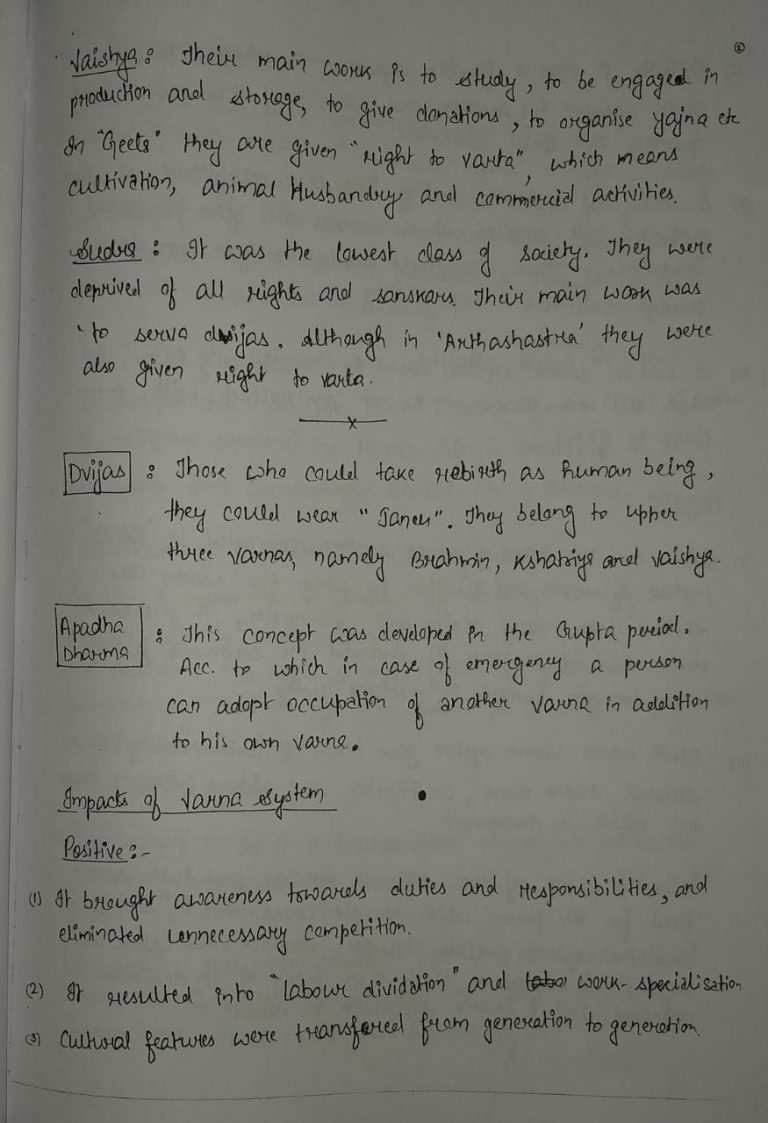 ②
Vaishya : Their main work is to study, to be engaged in
production and storage, to give donations, to organise yajna etc
In "Geeta" they are given "right to varta", which means
cultivation, animal Husbandry and commercial activities.
Sudra : It was the lowest class of society. They were
deprived of all rights and sanskars. Their main work was
to serva dwijas. Although in 'Arthashastra' they were
also given right to varta.
x
Dvijas : Those who could take rebirth as human being,
they could wear "Janeu". They belong to upper
three varnas, namely Brahmin, Kshatriya and Vaishya.
Apadha
Dharma : This concept was developed in the Gupta period.
Acc. to which in case of emergency a person
can adopt occupation of another varna in addition
to his own varna.
Impacts of Varna System
Positive :-
(1) It brought awareness towards duties and responsibilities, and
eliminated unnecessary competition.
(2) It resulted into "labour dividation" and labo work-specialisation
(3) Cultural features were transfered from generation to generation.